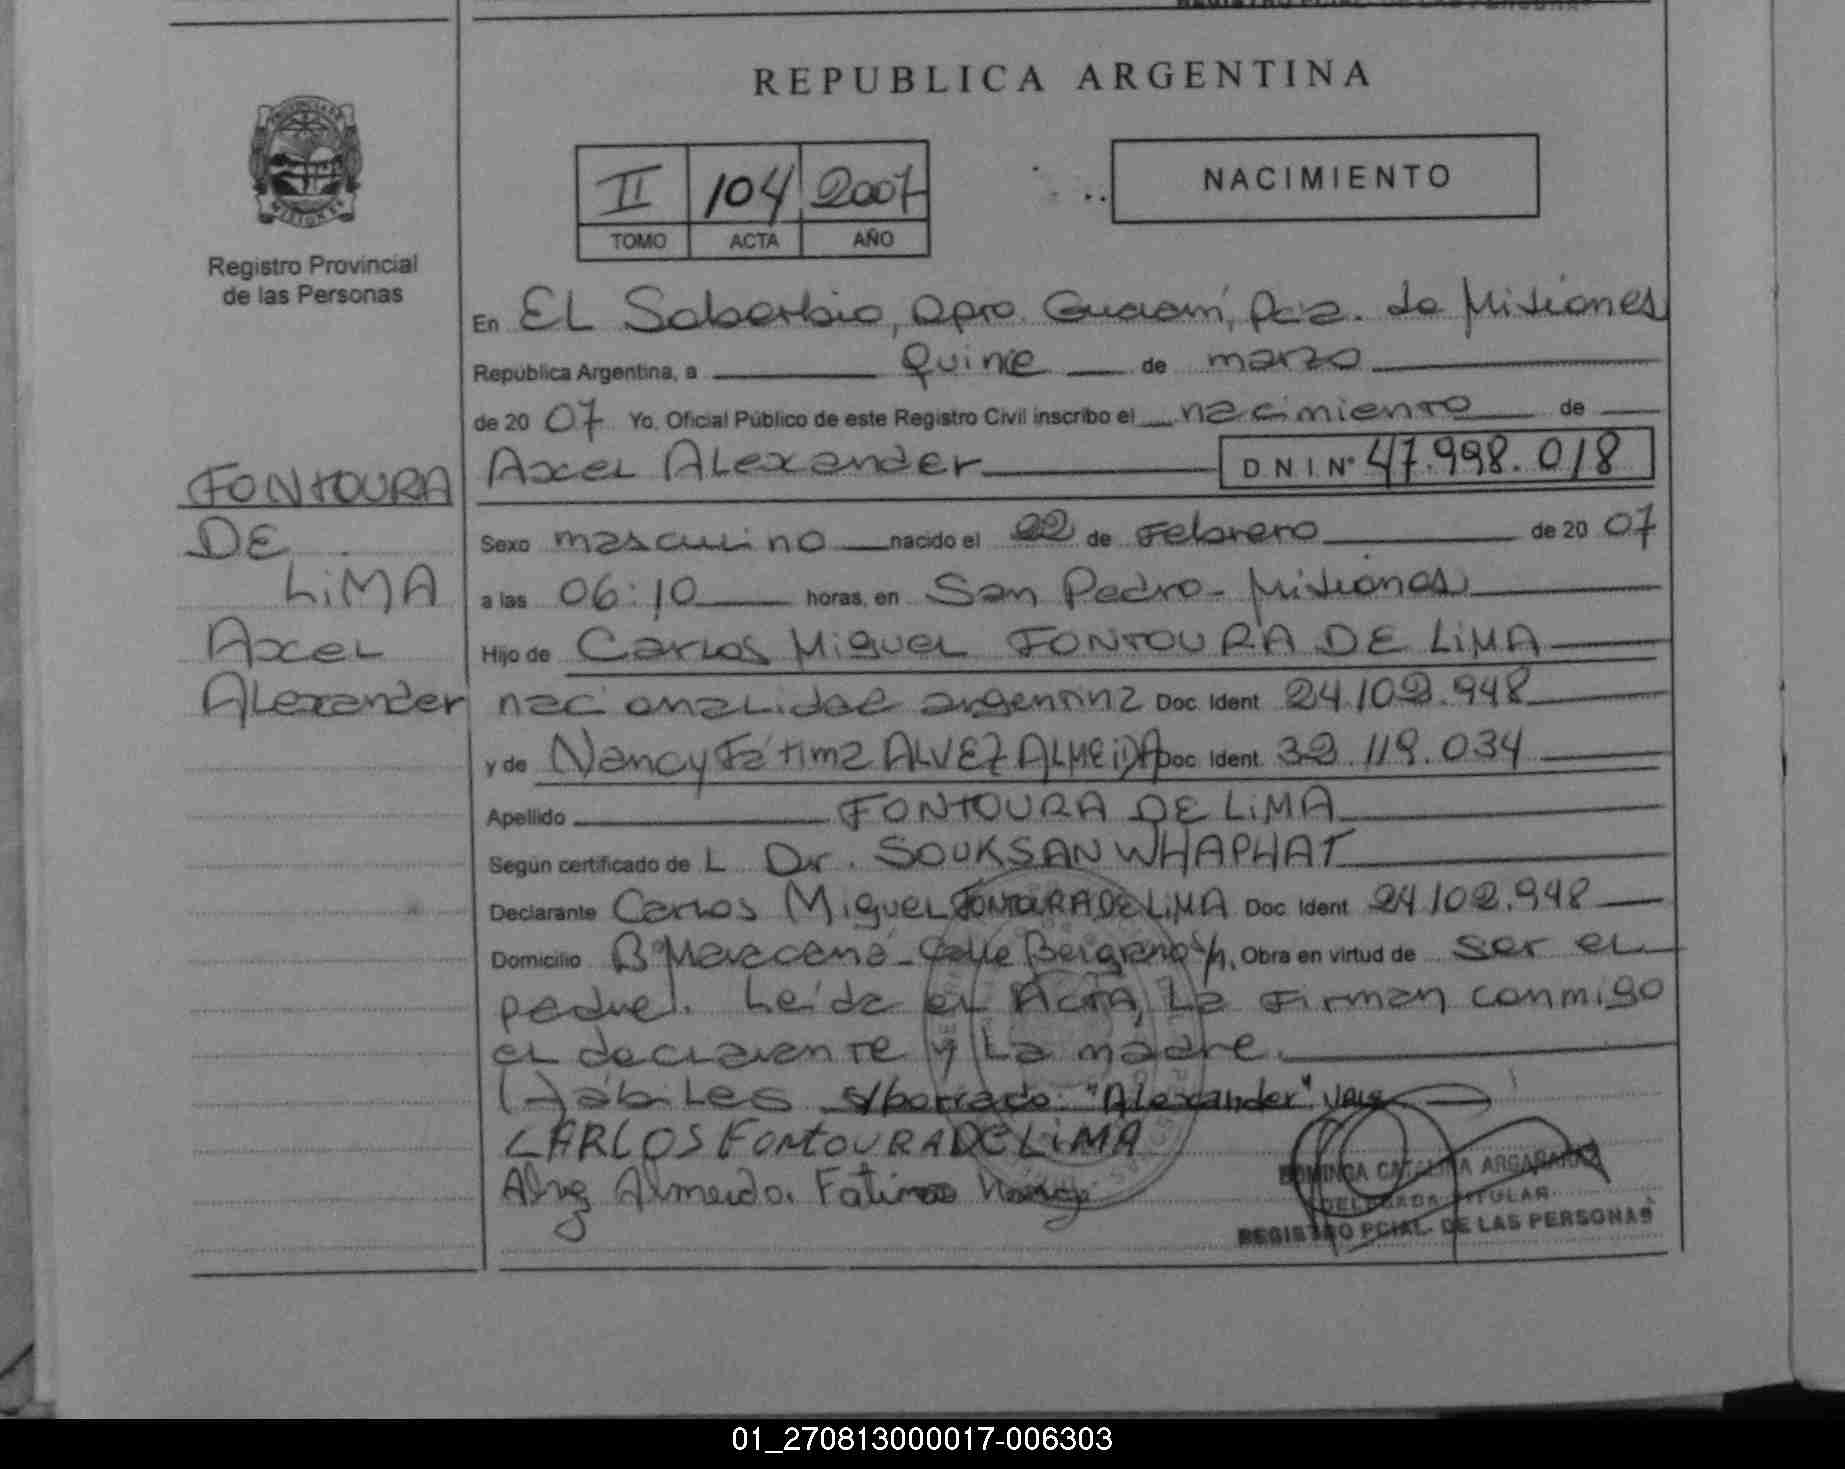 REPUBLICA ARGENTINA
II 104 2007
TOMO ACTA AÑO
NACIMIENTO
Registro Provincial
de las Personas
FONTOURA
DE
LiMA
Axel
Alexander
En El Soberbio, Dpto. Guaraní, Pcia. de Misiones
República Argentina, a quince de marzo
de 20 07 Yo, Oficial Público de este Registro Civil inscribo el nacimiento de
Axel Alexander D N I Nº 47.998.018
Sexo masculino nacido el 22 de Febrero de 20 07
a las 06:10 horas, en San Pedro - Misiones
Hijo de Carlos Miguel FONTOURA DE LiMA
nacionalidad argentina Doc. Ident. 24.102.948
y de Nancy Fátima ALVEZ ALMEiDA Doc. Ident. 32.119.034
Apellido FONTOURA DE LiMA
Según certificado de L Dr. SOUKSAN WHAPHAT
Declarante Carlos Miguel FONTOURA DE LiMA Doc. Ident 24.102.948
Domicilio Bº Maracaná - Calle Belgrano s/n, Obra en virtud de ser el
padre. Leída el Acta, La Firman conmigo
el declarante y La madre.
Hábiles s/borrado: "Alexander" Vale
CARLOS FONTOURA DE LiMA
Alvez Almeida. Fatima Nancy
DOMINGA CATALINA ARGAÑARAZ
DELEGADA TITULAR
REGISTRO PCIAL. DE LAS PERSONAS
01_270813000017-006303